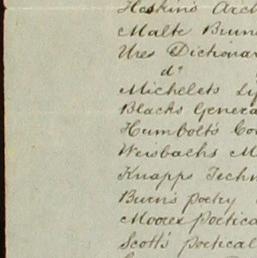 Hoskins Arch
Malte Brun
Ures Dictionar
do
Michelets Ly
Blacks Genera
Humbolt's Co
Weisbachs M
Knapps Techn
Burn's poetry
Moores poetica
Scott's poetical